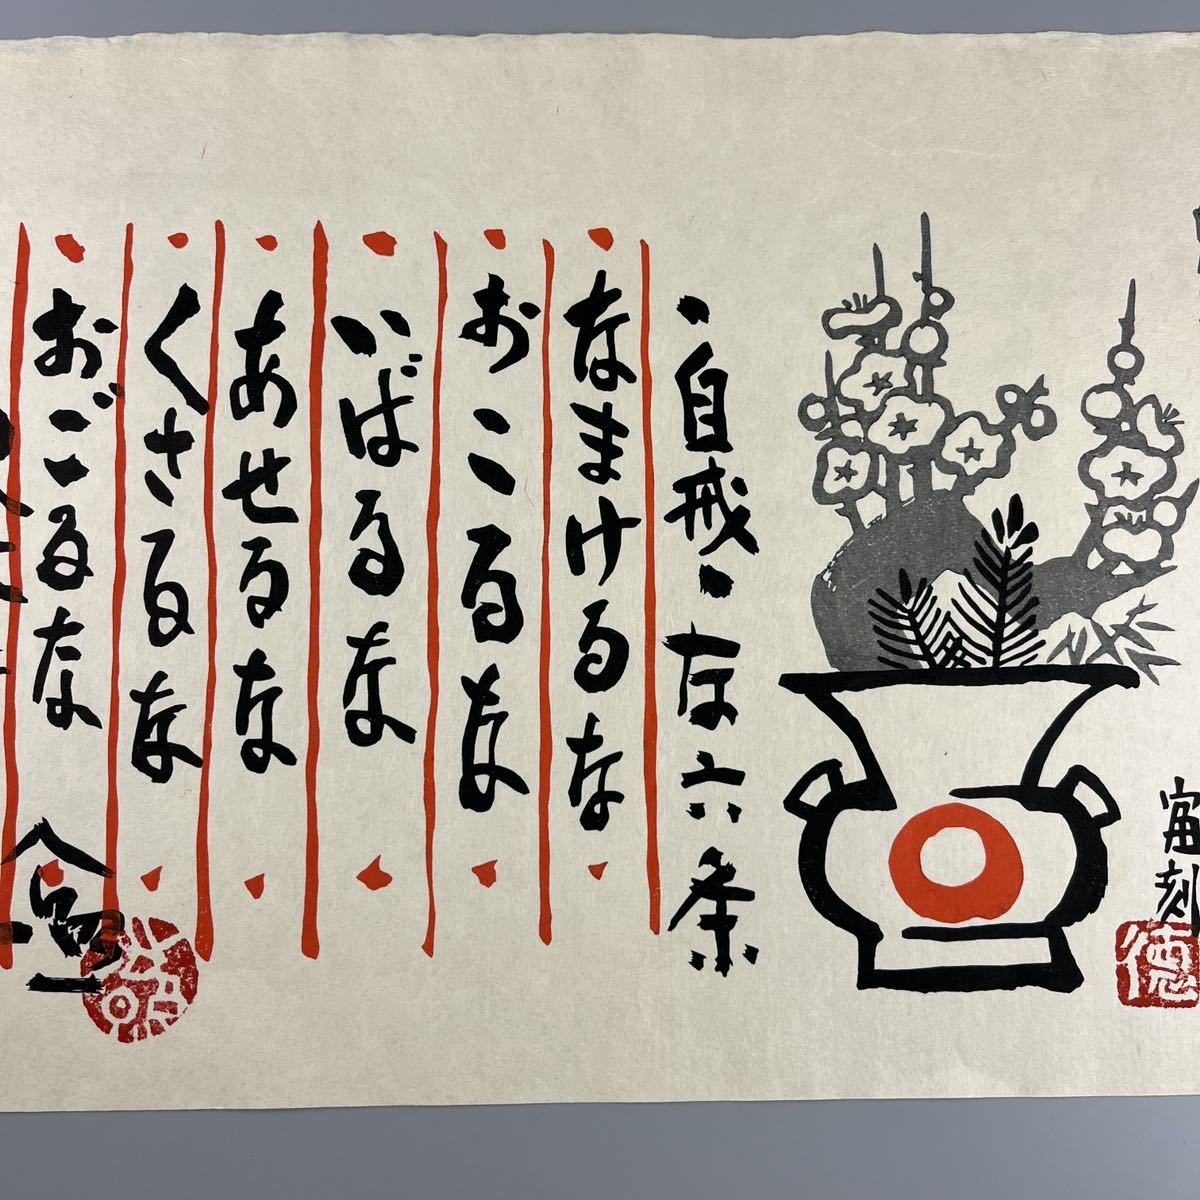 富刻
徳
・自戒・な六条
なまけるな
おこるな
いばるな
あせるな
くさるな
おごるな